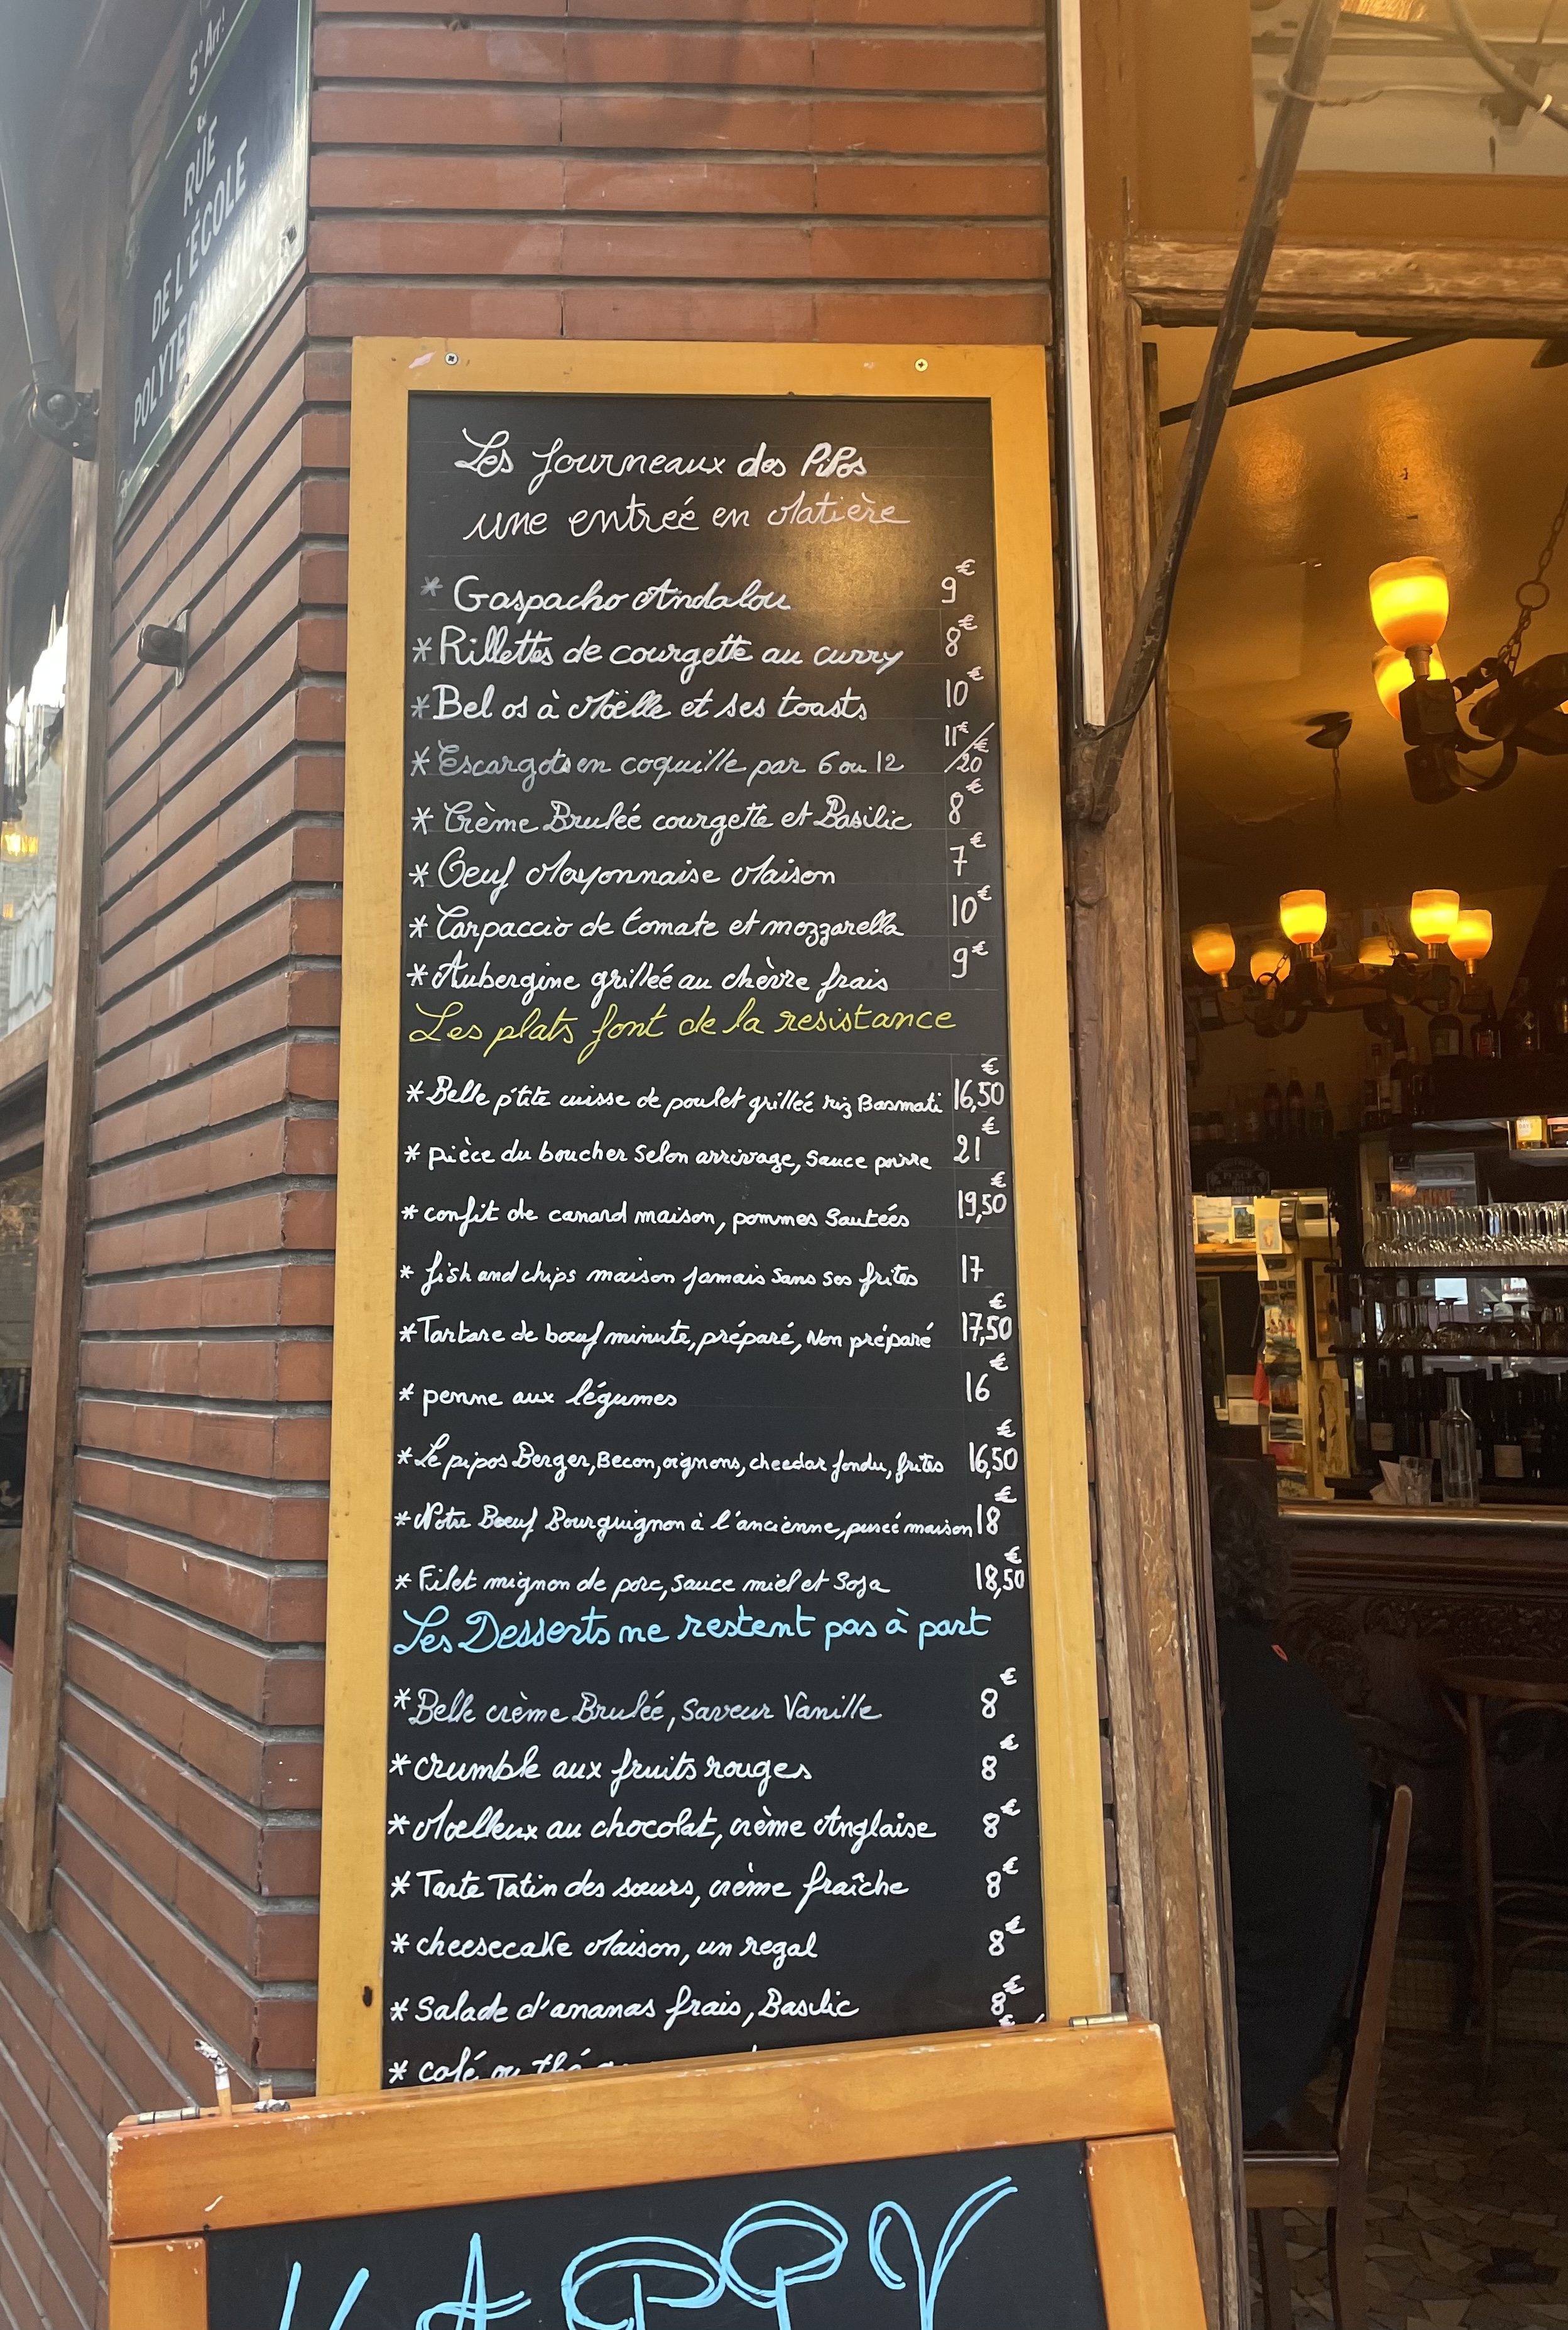 5e Arrt
RUE
DE L'ÉCOLE
POLYTECHNIQUE
Les fourneaux des PiPos
une entreé en Matière
* Gaspacho Andalou 9€
* Rillettes de courgette au curry 8€
* Bel os à Moëlle et ses toasts 10€
* Escargots en coquille par 6 ou 12 11€/20€
* Crème Bruleé courgette et Basilic 8€
* Oeuf Mayonnaise Maison 7€
* Carpaccio de tomate et mozzarella 10€
* Aubergine grilleé au chèvre frais 9€
Les plats font de la resistance
* Belle p'tite cuisse de poulet grilleé riz Basmati 16,50€
* pièce du boucher selon arrivage, sauce poivre 21€
* confit de canard maison, pommes sauteés 19,50€
* fish and chips maison jamais sans ses frites 17
* Tartare de bœuf minute, préparé, Non préparé 17,50€
* penne aux légumes 16€
* Le pipos Berger, Becon, oignons, cheedar fondu, frites 16,50€
* Notre Bœuf Bourguignon à l'ancienne, pureé maison 18€
* Filet mignon de porc, sauce miel et Soja 18,50€
Les Desserts ne restent pas à part
* Belle crème Brulée, Saveur Vanille 8€
* crumble aux fruits rouges 8€
* Moelleux au chocolat, crème Anglaise 8€
* Tarte Tatin des sœurs, crème fraîche 8€
* cheesecake Maison, un regal 8€
* Salade d'ananas frais, Basilic 8€
* café ou thé
HAPPY